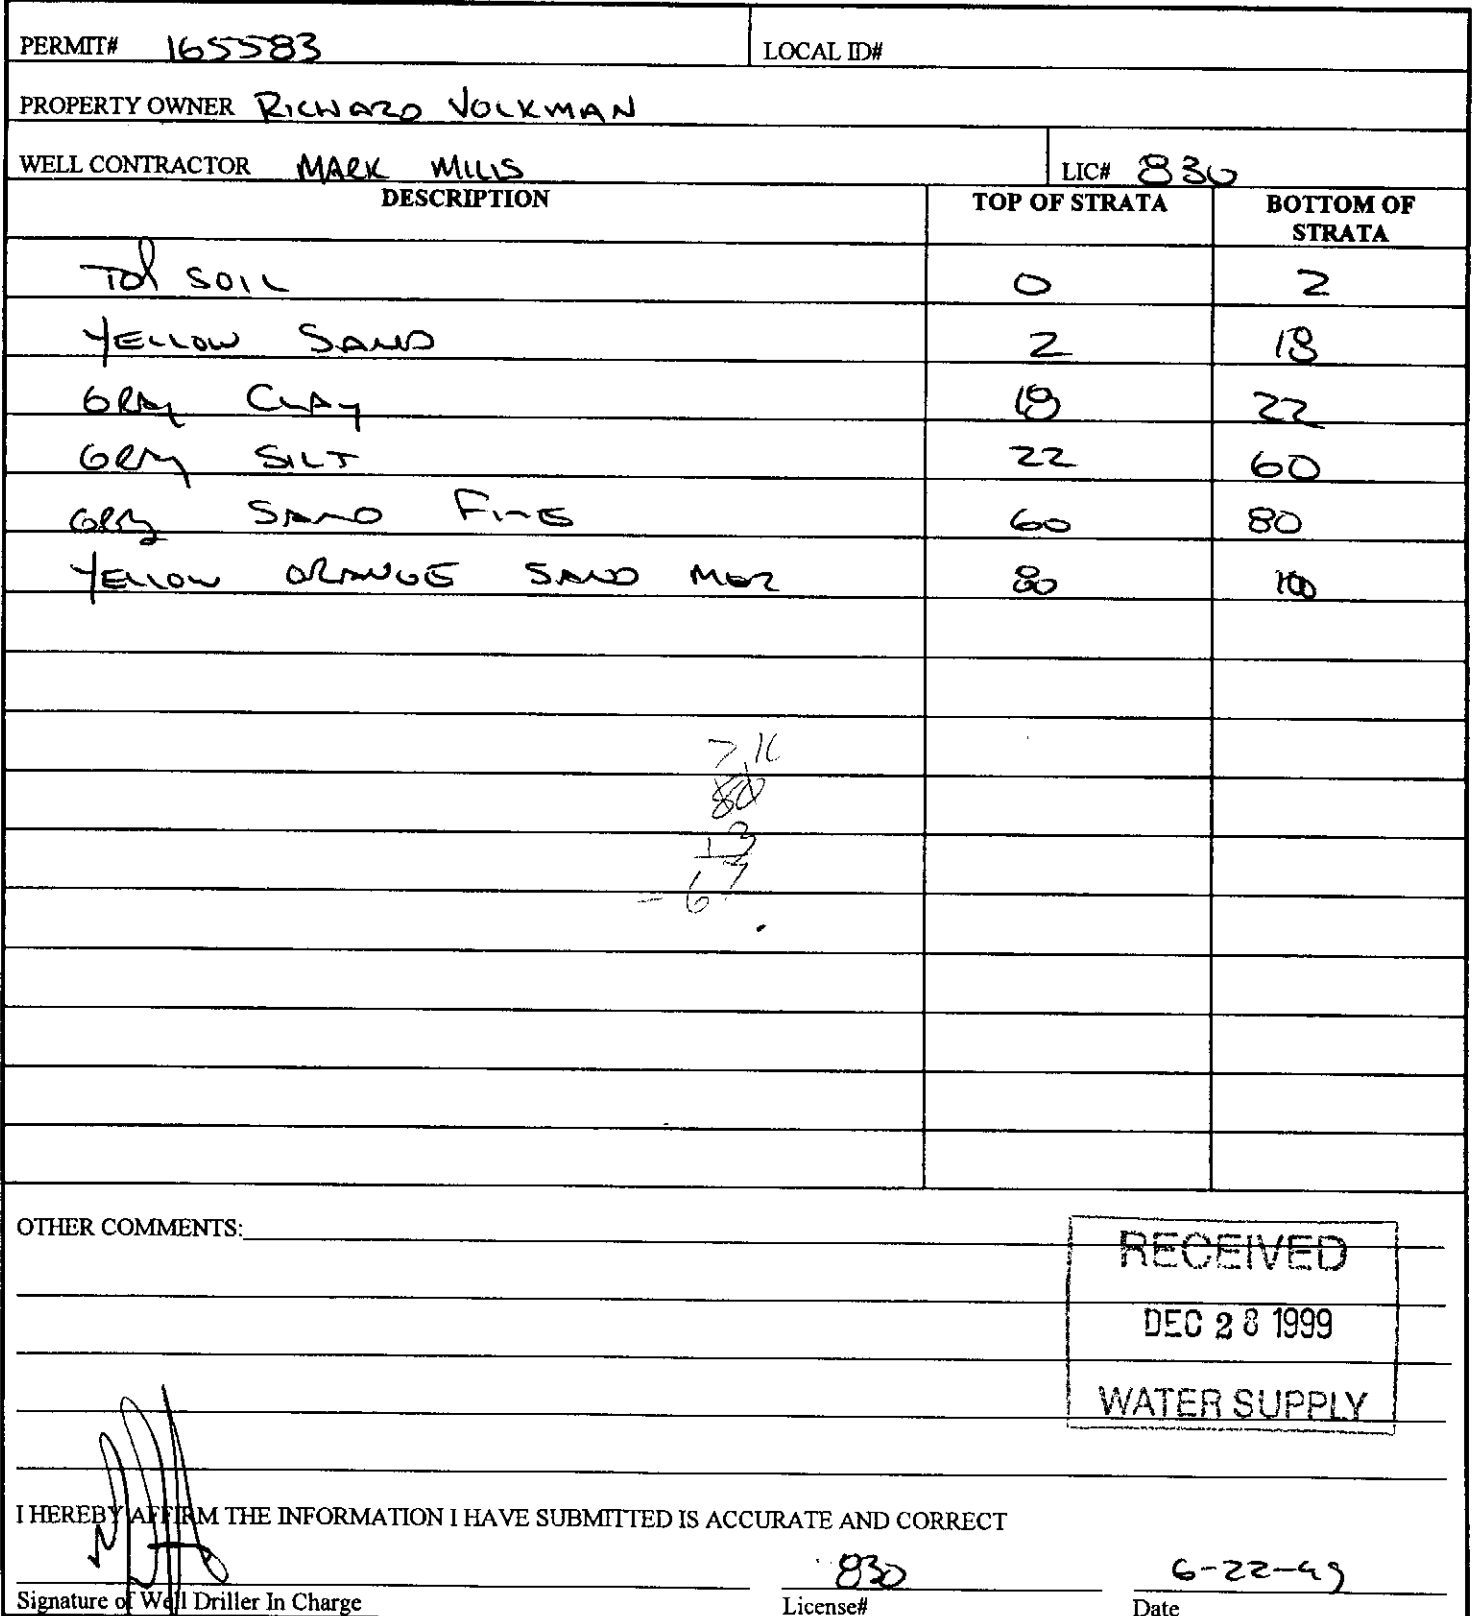 PERMIT# 165583 LOCAL ID#
PROPERTY OWNER RICHARD VOLKMAN
WELL CONTRACTOR MARK MILLS LIC# 830
DESCRIPTION TOP OF STRATA BOTTOM OF STRATA
TOP SOIL 0 2
YELLOW SAND 2 18
GRAY CLAY 18 22
GRAY SILT 22 60
GRAY SAND FINE 60 80
YELLOW ORANGE SAND MED 80 100
80
13
- 67
OTHER COMMENTS:
RECEIVED
DEC 28 1999
WATER SUPPLY
I HEREBY AFFIRM THE INFORMATION I HAVE SUBMITTED IS ACCURATE AND CORRECT
830 6-22-99
Signature of Well Driller In Charge License# Date